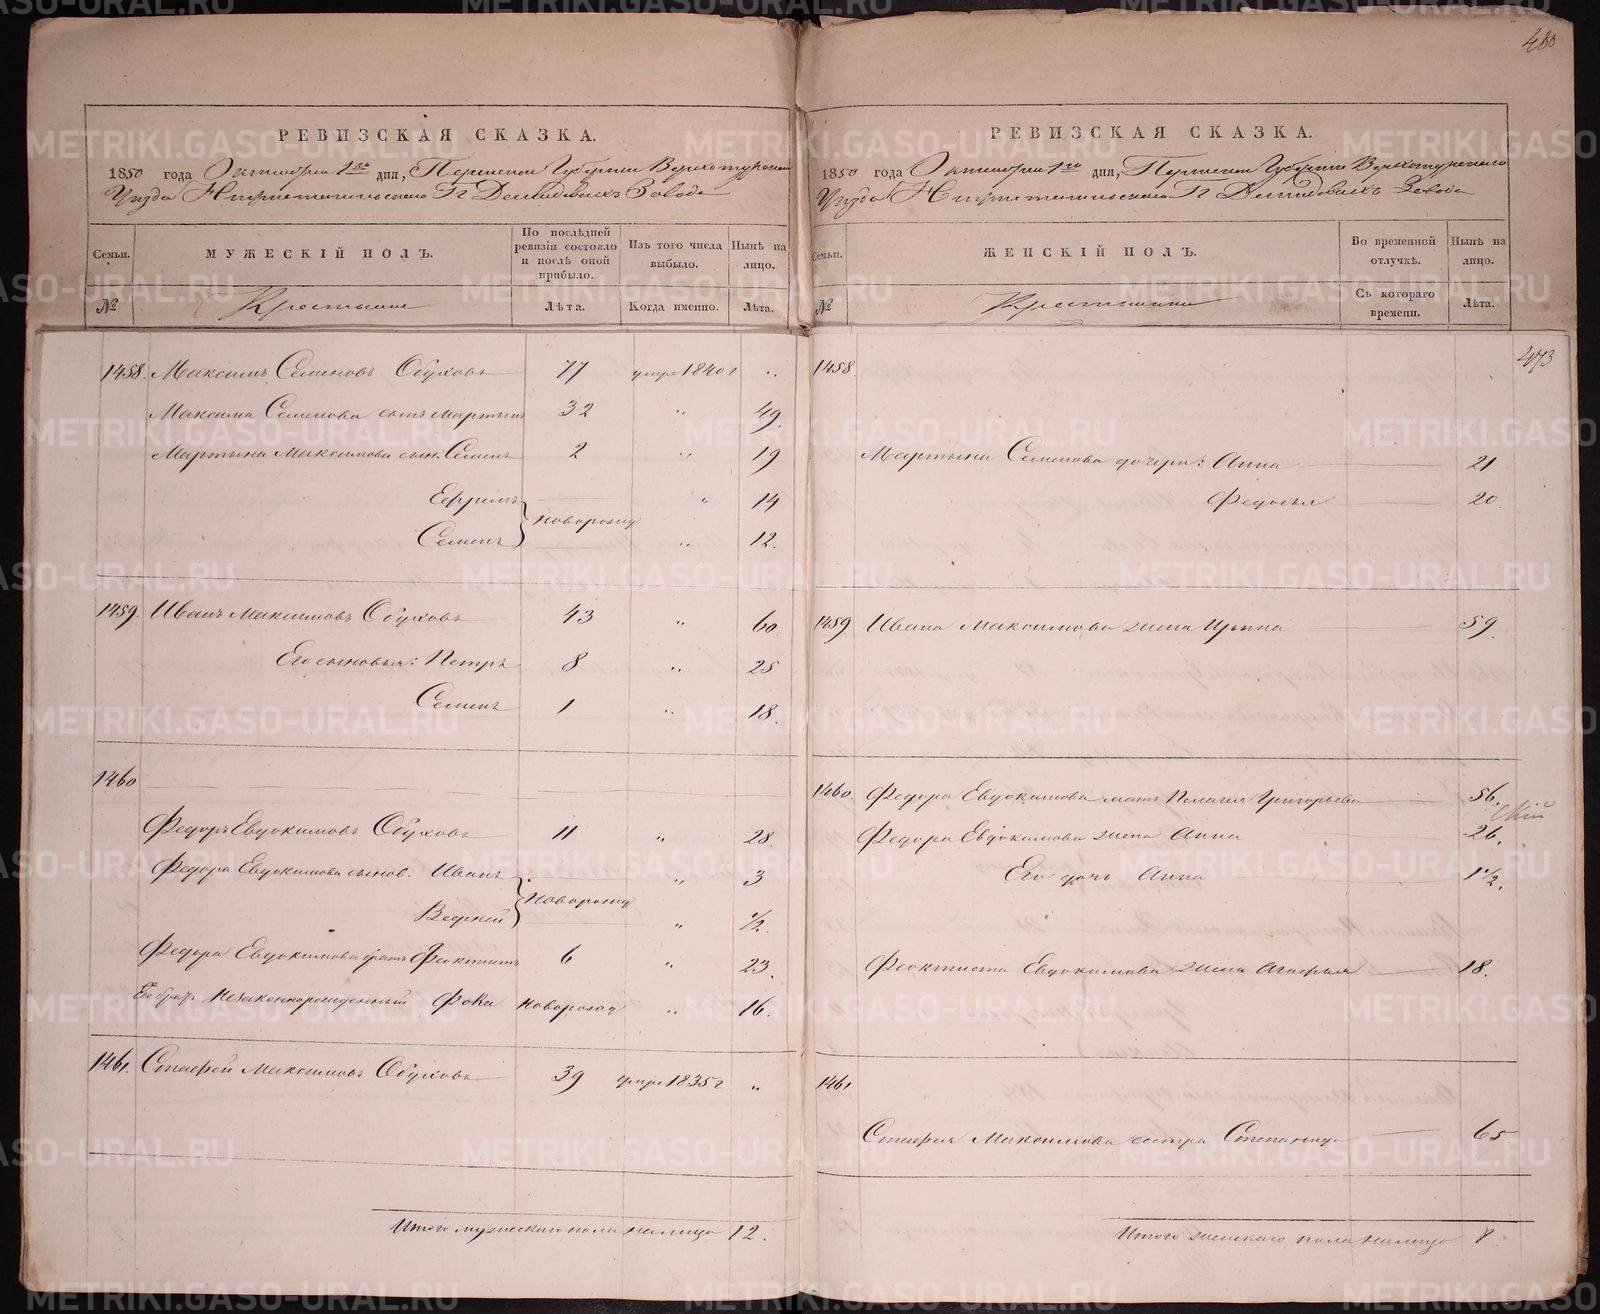 480
РЕВИЗСКАЯ СКАЗКА.
1850 года Октября 1го дня, Пермской Губернии Верхотурскаго
Уезда Нижнетагильскаго Гг Демидовыхъ Завода
Семьи.
МУЖЕСКІЙ ПОЛЪ.
По послѣдней ревизіи состояло и послѣ оной прибыло.
Изъ того числа выбыло.
Нынѣ на лицо.
№
Крестьяне
Лѣта.
Когда именно.
Лѣта.
1458. Максимъ Семеновъ Обуховъ 77 умре 1840 г „
Максима Семенова сынъ Мартынъ 32 „ 49.
Мартына Максимова сын. Семенъ 2 „ 19
Ефремъ „ 14
новорожд
Семенъ „ 12.
1459. Иванъ Максимовъ Обуховъ 43 „ 60
Его сыновья: Петръ 8 „ 25
Семенъ 1 „ 18.
1460
Федоръ Евдокимовъ Обуховъ 11 „ 28.
Федора Евдокимова сынов. Иванъ „ 3
новорожд
„ 1/2.
Федора Евдокимова братъ Феоктистъ 6 „ 23.
Его братъ незаконнорожденный Фока новорожд „ 16.
1461. Стафей Максимовъ Обуховъ 39 умре 1835 г „
Итого мужескаго пола налицо 12.
РЕВИЗСКАЯ СКАЗКА.
1850 года Октября 1го дня, Пермской Губерніи Верхотурскаго
Уезда Нижнетагильскаго Гг Демидовыхъ Завода
Семьи.
ЖЕНСКІЙ ПОЛЪ.
Во временной отлучкѣ.
Нынѣ на лицо.
№
Крестьянки
Съ котораго времени.
Лѣта.
473
1458.
Мартына Семенова дочери: Анна 21
Федосья 20.
1459 Ивана Максимова жена Ирина 59.
1460. Федора Евдокимова мать Пелагея Григорьева 56.
Федора Евдокимова жена Анна 26.
Его дочь Анна 1 1/2.
Феоктиста Евдокимова жена Агафья 18.
1461
Стафея Максимова сестра Степанида 65
Итого женскаго пола налицо 8.
METRIKI.GASO-URAL.RU